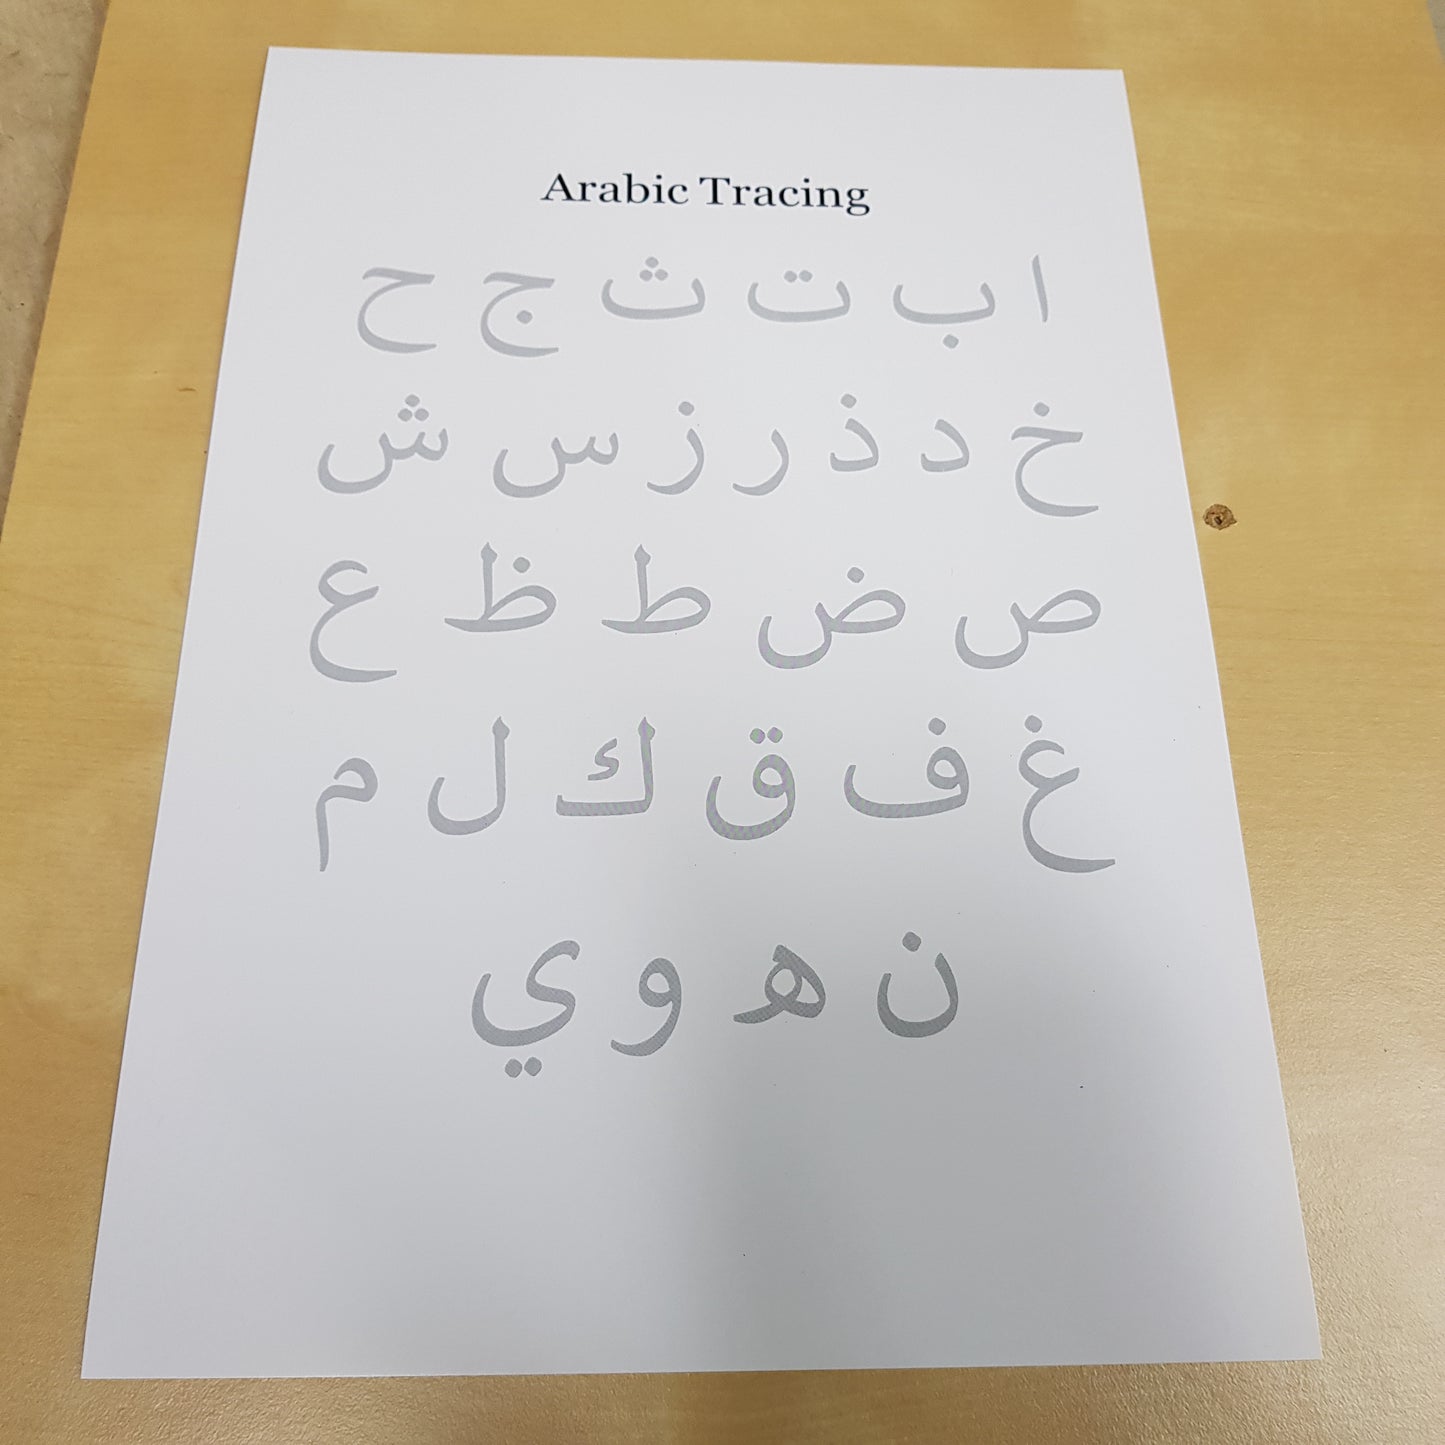 Arabic Tracing
ا ب ت ث ج ح
خ د ذ ر ز س ش
ص ض ط ظ ع
غ ف ق ك ل م
ن ه و ي